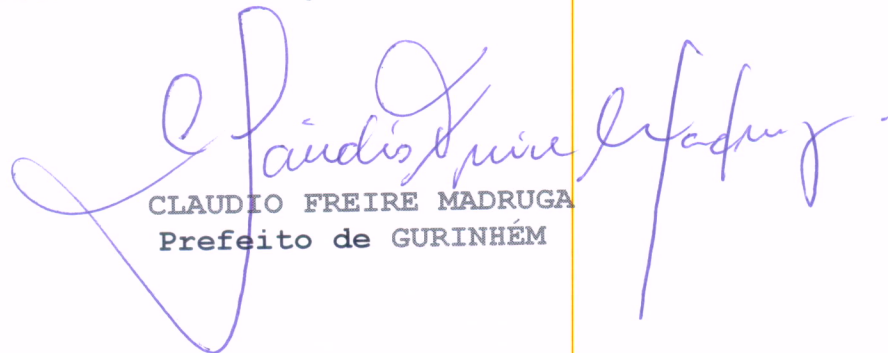 Claudio Freire Madruga
CLAUDIO FREIRE MADRUGA
Prefeito de GURINHÉM